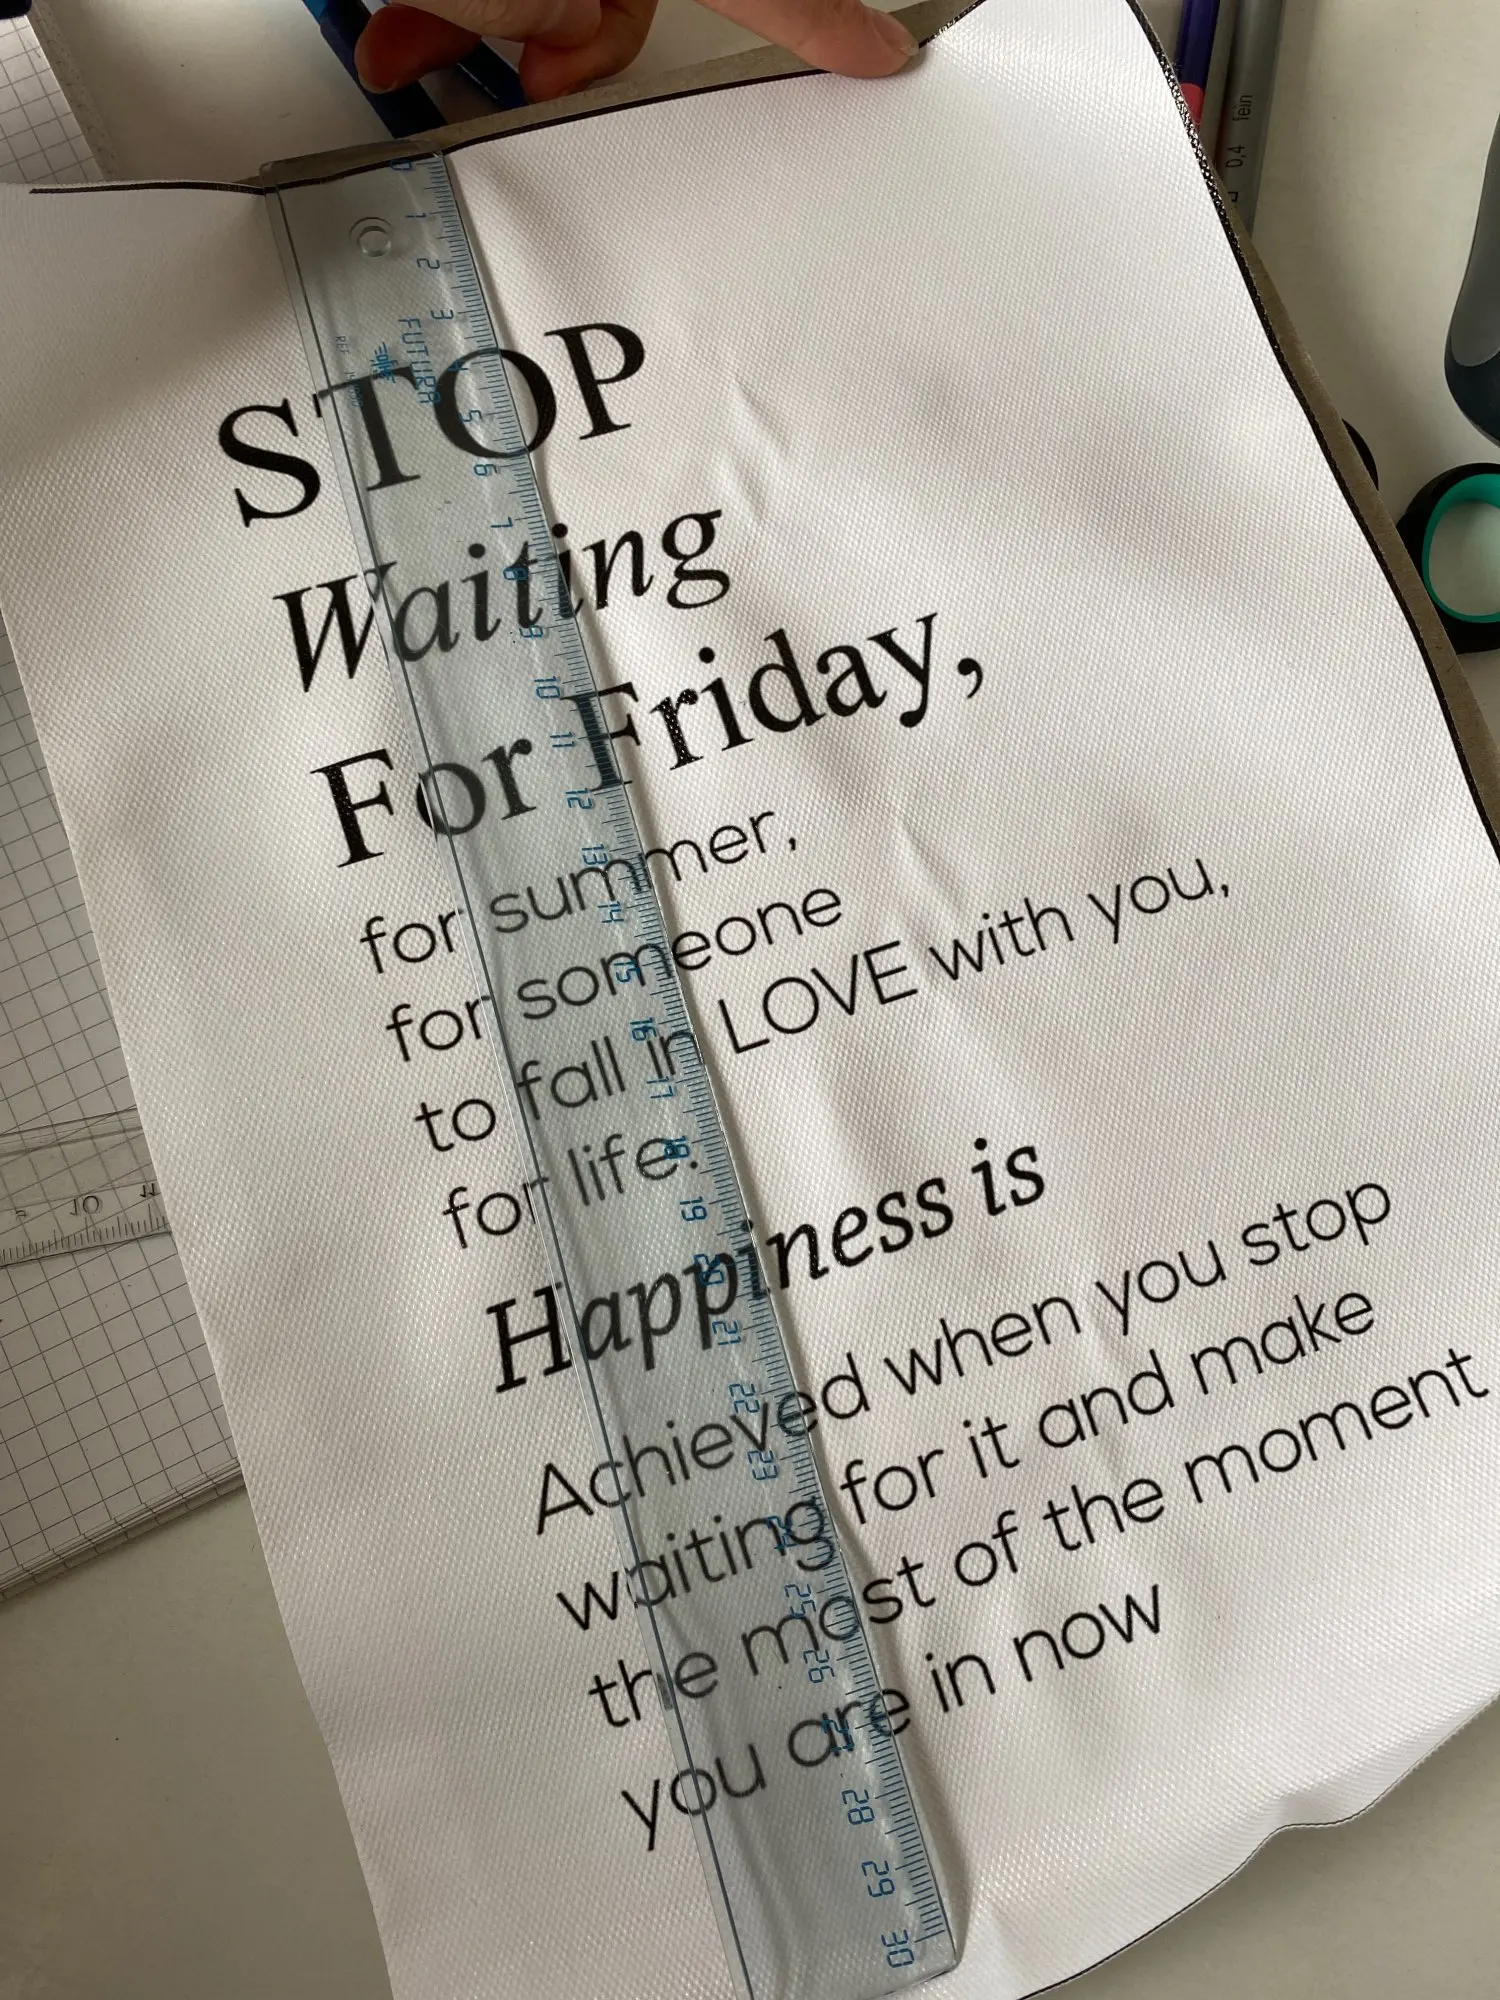 STOP
Waiting
For Friday,
for summer,
for someone
to fall in LOVE with you,
for life.
Happiness is
Achieved when you stop
waiting for it and make
the most of the moment
you are in now
0 1 2 3 4 5 6 7 8 9 10 11 12 13 14 15 16 17 18 19 20 21 22 23 24 25 26 27 28 29 30
FUTURA
REF
0,4 fein
10 11